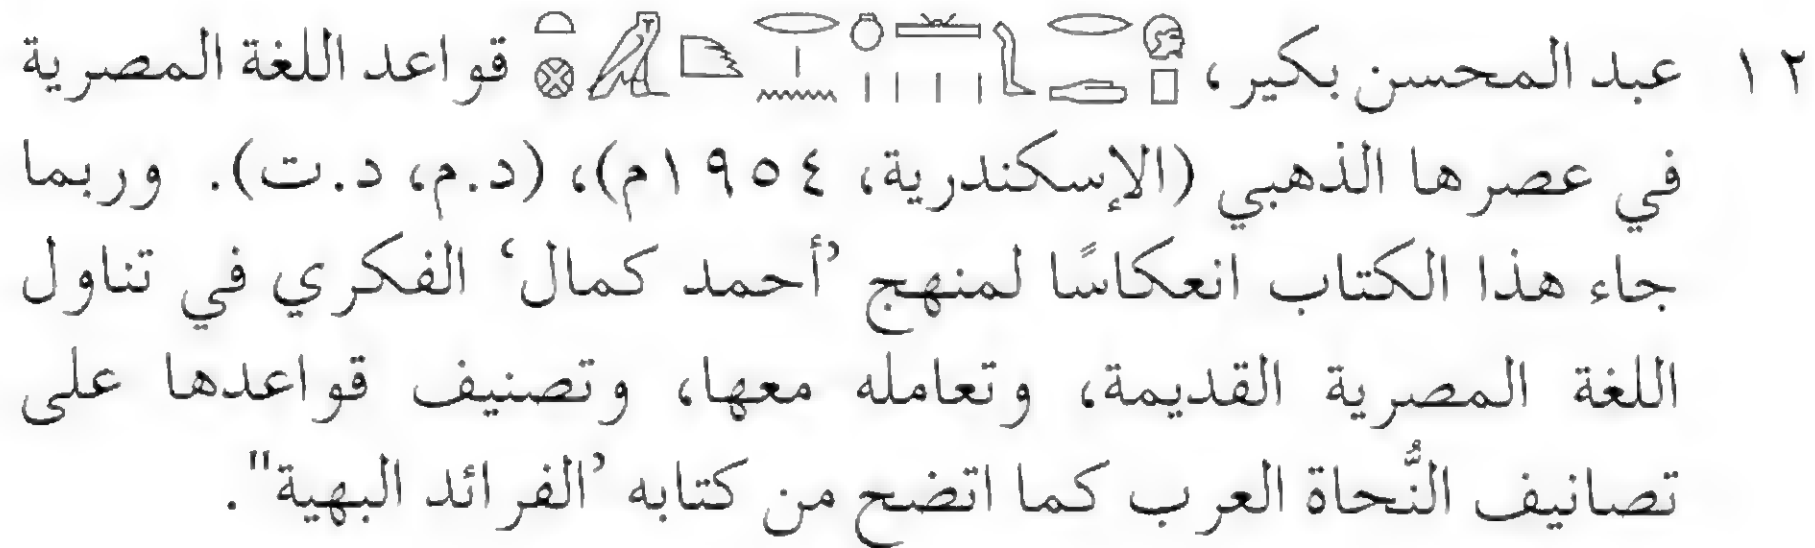 ١٢ عبد المحسن بكير، 𓁶𓊪𓂋𓂧𓂾𓏛𓏥𓏌𓏤𓂋𓏤𓈖𓆎𓅓𓏏𓊖 قواعد اللغة المصرية
في عصرها الذهبي (الإسكندرية، ١٩٥٤م)، (د.م، د.ت). وربما
جاء هذا الكتاب انعكاسًا لمنهج ’أحمد كمال‘ الفكري في تناول
اللغة المصرية القديمة، وتعامله معها، وتصنيف قواعدها على
تصانيف النُّحاة العرب كما اتضح من كتابه ’الفرائد البهية".